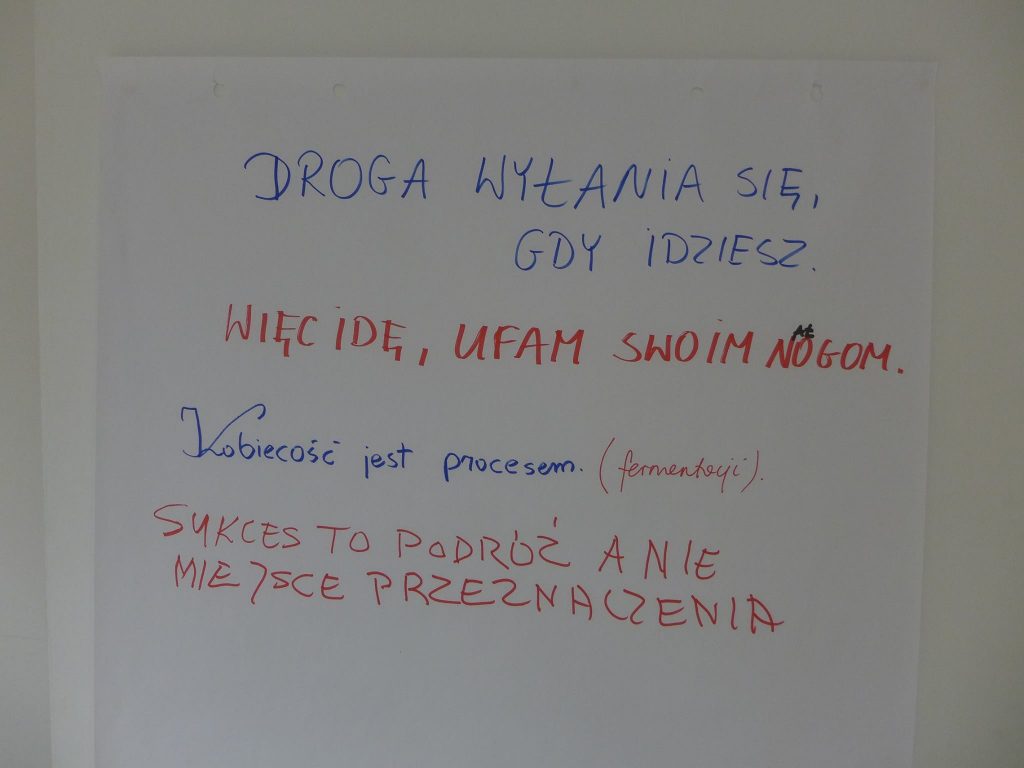 DROGA WYŁANIA SIĘ,
GDY IDZIESZ.
WIĘC IDĘ, UFAM SWOIM NOGOM.
Kobiecość jest procesem. (fermentacji).
SUKCES TO PODRÓŻ A NIE
MIEJSCE PRZEZNACZENIA